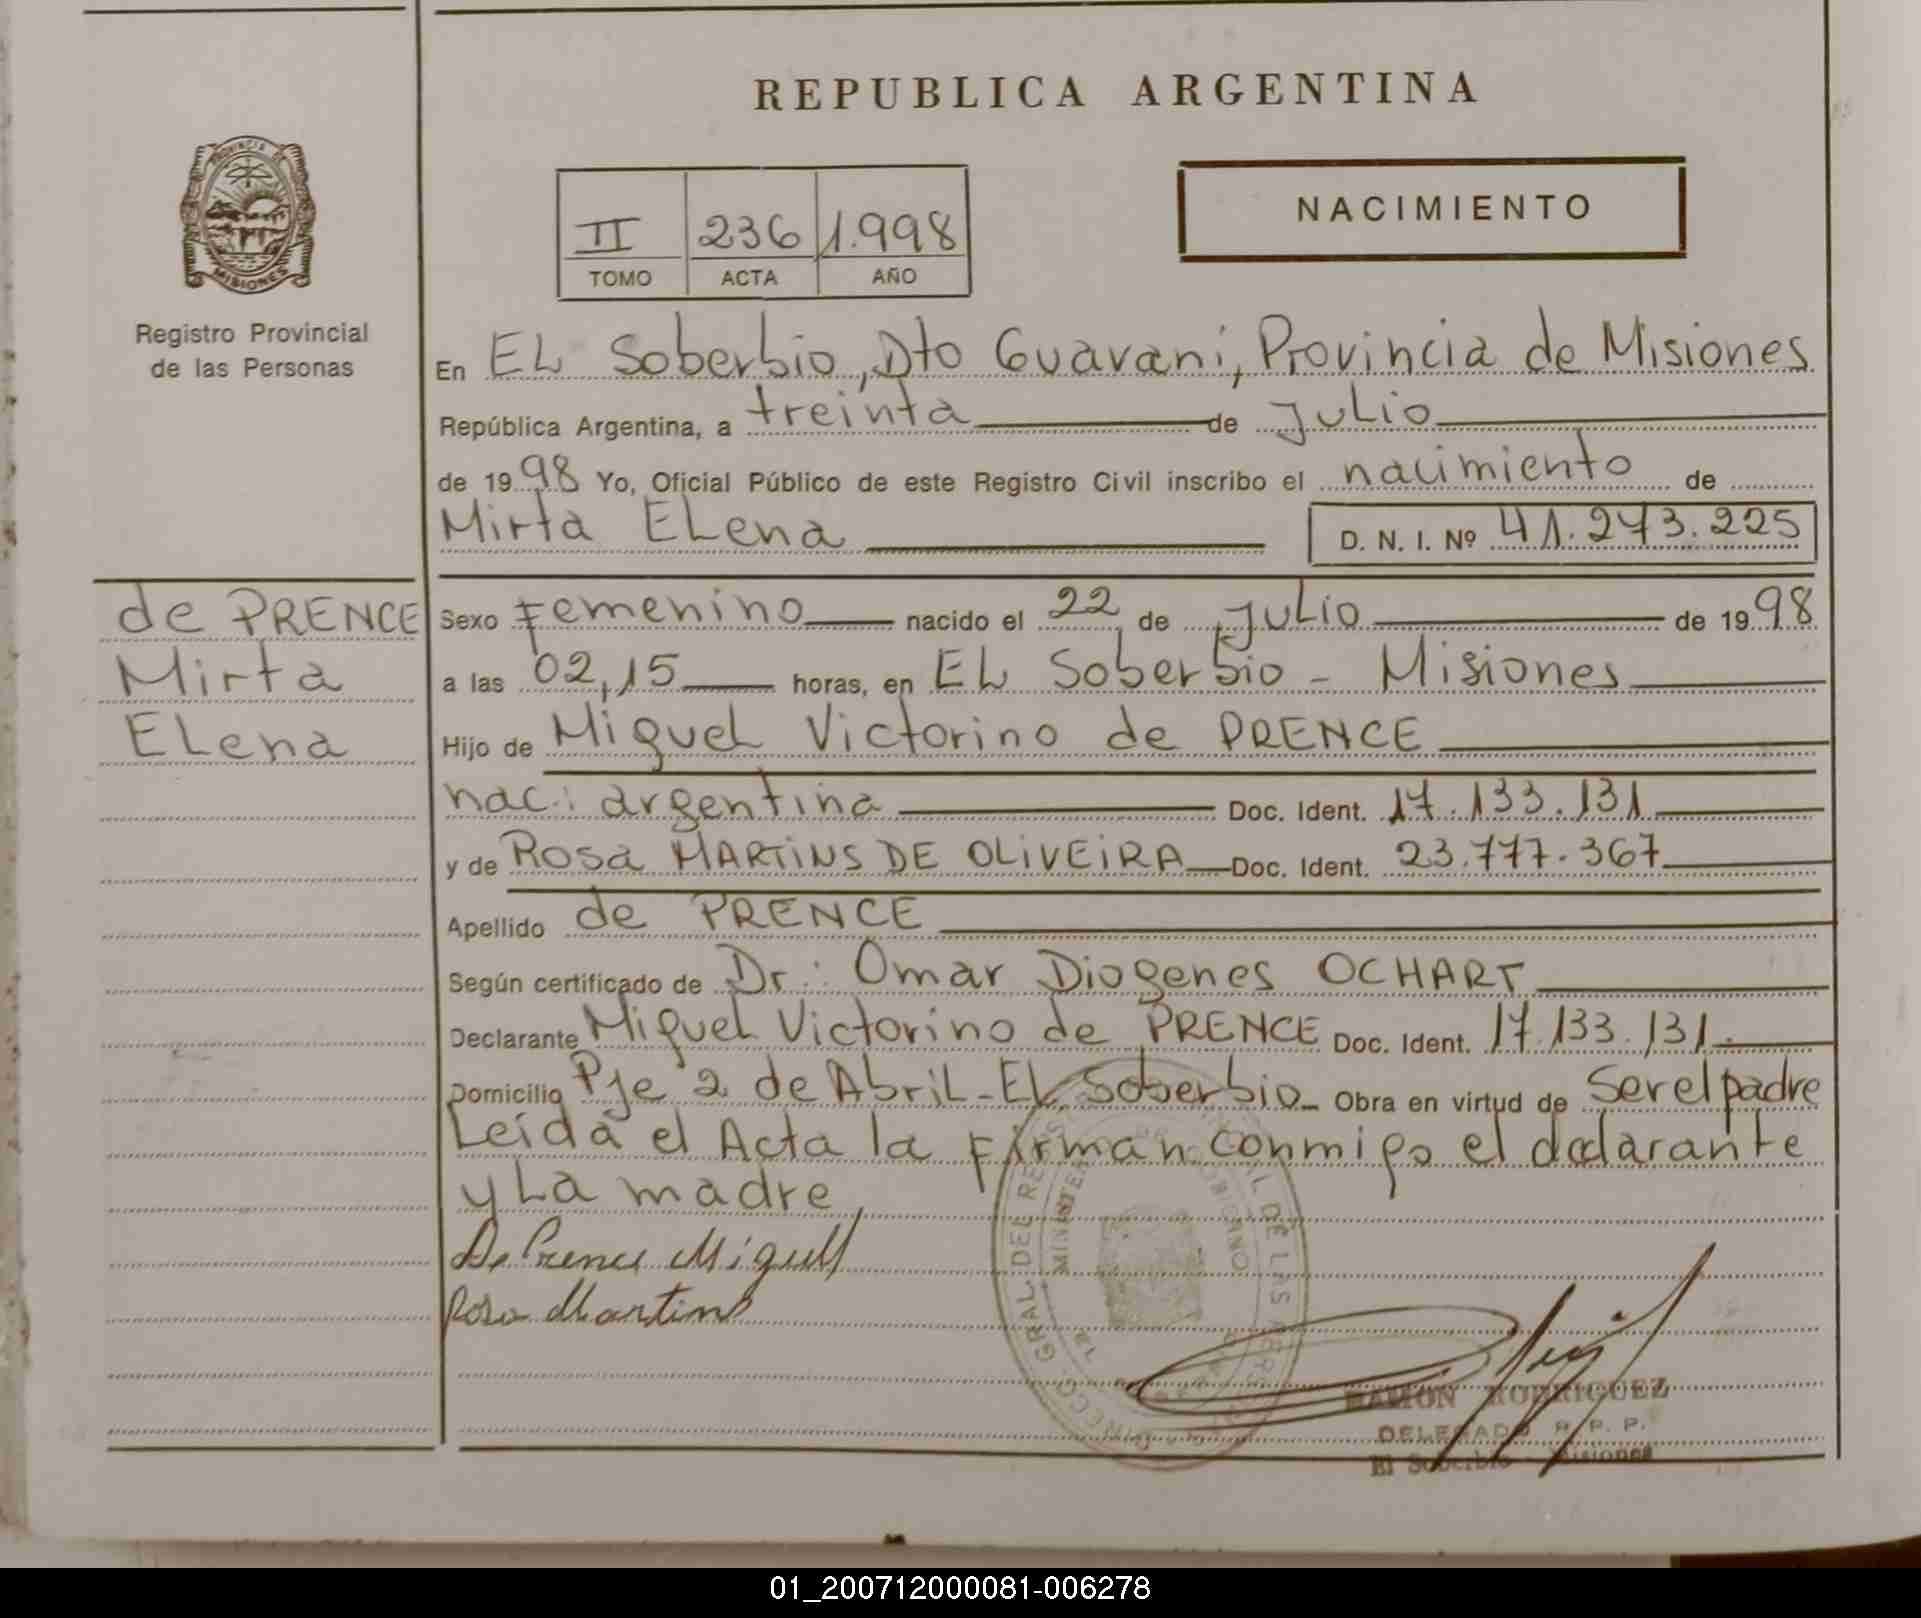 REPUBLICA ARGENTINA
PROVINCIA DE
MISIONES
Registro Provincial
de las Personas
II 236 1.998
TOMO ACTA AÑO
NACIMIENTO
En EL Soberbio, Dto Guarani, Provincia de Misiones
República Argentina, a treinta de Julio
de 1998 Yo, Oficial Público de este Registro Civil inscribo el nacimiento de
Mirta ELena D. N. I. Nº 41.273.225
de PRENCE
Mirta
ELena
Sexo Femenino nacido el 22 de Julio de 1998
a las 02,15 horas, en EL Soberbio - Misiones
Hijo de Miguel Victorino de PRENCE
nac.: argentina Doc. Ident. 17.133.131
y de Rosa MARTINS DE OLIVEIRA Doc. Ident. 23.777.367
Apellido de PRENCE
Según certificado de Dr.: Omar Diogenes OCHART
Declarante Miguel Victorino de PRENCE Doc. Ident. 17.133.131.
Domicilio Pje 2 de Abril - EL Soberbio - Obra en virtud de Ser el padre
Leída el Acta la Firman conmigo el declarante
y La madre
De Prence Miguel
Rosa Martins
RAMON RODRIGUEZ
DELEGADO R. P. P.
El Soberbio - Misiones
01_200712000081-006278